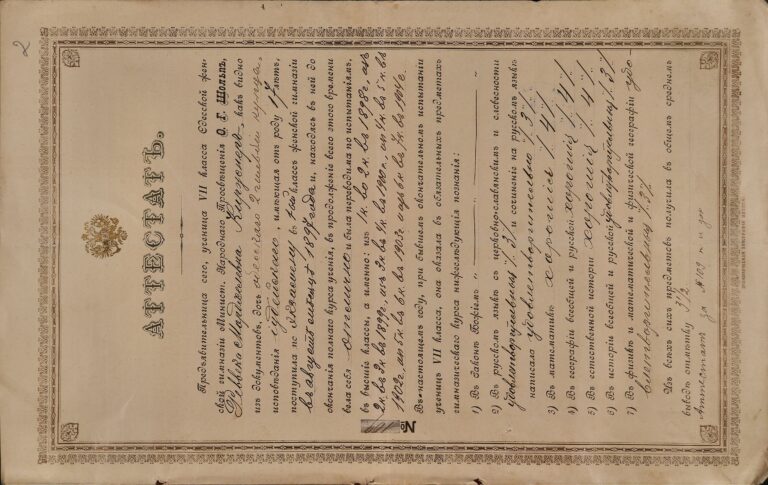 АТТЕСТАТЪ.
Предъявительница сего, ученица VII класса Одесской жен-
ской гимназіи вѣдомст. Народнаго Просвѣщенія О. Г. Шольпъ,
какъ видно
изъ документовъ, дочь 2 гильдіи купца,
исповѣданія іудейскаго, имѣющая отъ роду 17 лѣтъ,
поступила по экзамену въ классъ женской гимназіи
въ августѣ мѣсяцѣ 1897 года и, находясь въ ней до
окончанія полнаго курса ученія, въ продолженіе всего этого времени
была себя отлично и была переводима по испытаніямъ,
въ высшіе классы, а именно: изъ 1 к. во 2 к. въ 1898 г., изъ
2 к. въ 3 к. въ 1899 г., изъ 3 к. въ 4 к. въ 1900 г., изъ 4 к. въ 5 к. въ
1902 г., изъ 5 к. въ 6 к. въ 1903 г. и изъ 6 к. въ 7 к. въ 1904 г.
Въ настоящемъ году, при бывшемъ окончательномъ испытаніи
ученицъ VII класса, она оказала въ обязательныхъ предметахъ
гимназическаго курса нижеслѣдующія познанія:
1) Въ Законѣ Божіемъ „ „
2) Въ русскомъ языкѣ съ церковно-славянскимъ и словесности
удовлетворительныя /3/ и сочиненіе на русскомъ языкѣ
написала удовлетворительно /3/
3) Въ математикѣ хорошія /4/
4) Въ географіи всеобщей и русской хорошія /4/
5) Въ естественной исторіи хорошія /4/
6) Въ исторіи всеобщей и русской удовлетворительныя /3/
7) Въ физикѣ и математической и физической географіи удо-
влетворительныя /3/
Изъ всѣхъ сихъ предметовъ получила въ общемъ среднемъ
выводѣ отмѣтку 3½
№
2